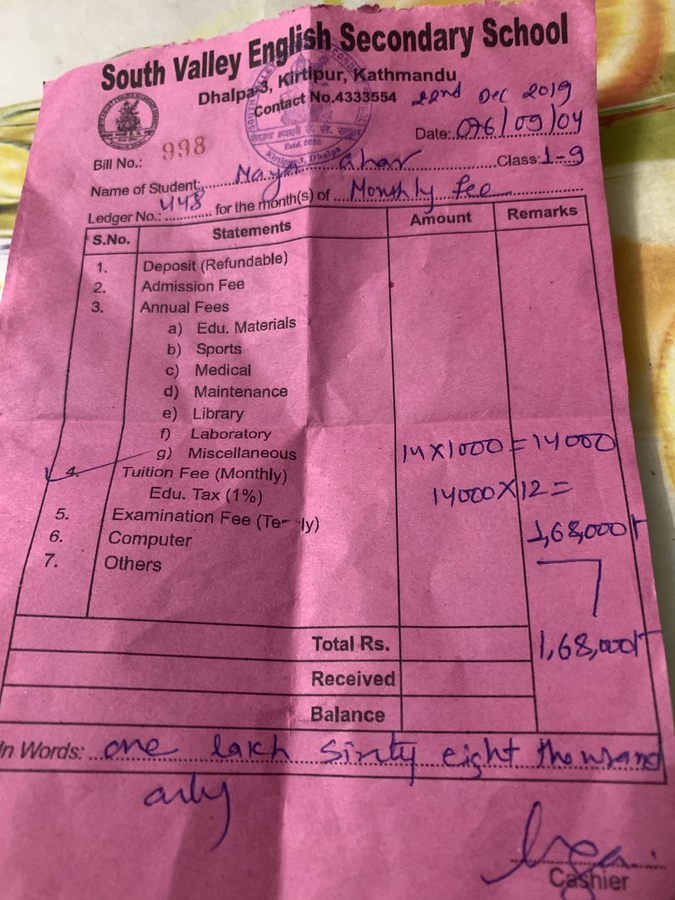 South Valley English Secondary School
Dhalpa-3, Kirtipur, Kathmandu
Contact No.4333554 22nd Dec 2019
Date: 076/09/04
Bill No.: 998
Name of Student: Class: 1-9
Ledger No.: 448 for the month(s) of Monthly fee
S.No. Statements Amount Remarks
1. Deposit (Refundable)
2. Admission Fee
3. Annual Fees
a) Edu. Materials
b) Sports
c) Medical
d) Maintenance
e) Library
f) Laboratory
g) Miscellaneous 14x1000=14000
4. Tuition Fee (Monthly)
Edu. Tax (1%) 14000x12=
5. Examination Fee 1,68,000/-
6. Computer
7. Others
Total Rs. 1,68,000/-
Received
Balance
In Words: one lakh sixty eight thousand
only
Cashier